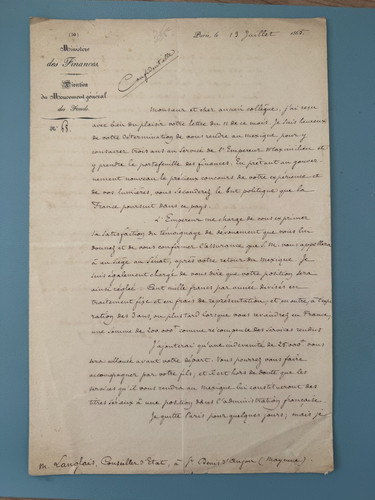 Ministère
des Finances.
Direction
du Mouvement général
des Fonds.
Confidentielle
Paris, le 13 Juillet 186
Monsieur et cher ancien collègue, j'ai reçu
avec bien du plaisir votre lettre du 11 de ce mois. Je suis heureux
de votre détermination de vous rendre au Mexique pour y
consacrer trois ans au service de l'Empereur Maximilien et
y prendre le portefeuille des finances. En prêtant au gouver-
nement nouveau le précieux concours de votre expérience et
de vos lumières, vous seconderez le but politique que la
France poursuit dans ce pays.
L'Empereur me charge de vous exprimer
sa satisfaction du témoignage de dévouement que vous lui
donnez et de vous confirmer l'assurance que S.M. vous appellera
à un siège au Sénat, après votre retour du Mexique. Je
suis également chargé de vous dire que votre position sera
ainsi réglée: Cent mille francs par année divisés en
traitement fixe et en frais de représentation, et en outre, à l'expi-
ration des 3 ans, ou plus tard lorsque vous reviendrez en France,
une somme de 200 000f comme récompense des services rendus
J'ajouterai qu'une indemnité de 25 000f vous
sera allouée avant votre départ. Vous pourrez vous faire
accompagner par votre fils, et il est hors de doute que les
services qu'il vous rendra au Mexique lui constitueront des
titres sérieux à une position dans l'administration française.
Je quitte Paris pour quelques jours; mais je
M. Langlais, Conseiller d'Etat, à St Denis d'Anjou (Mayenne).